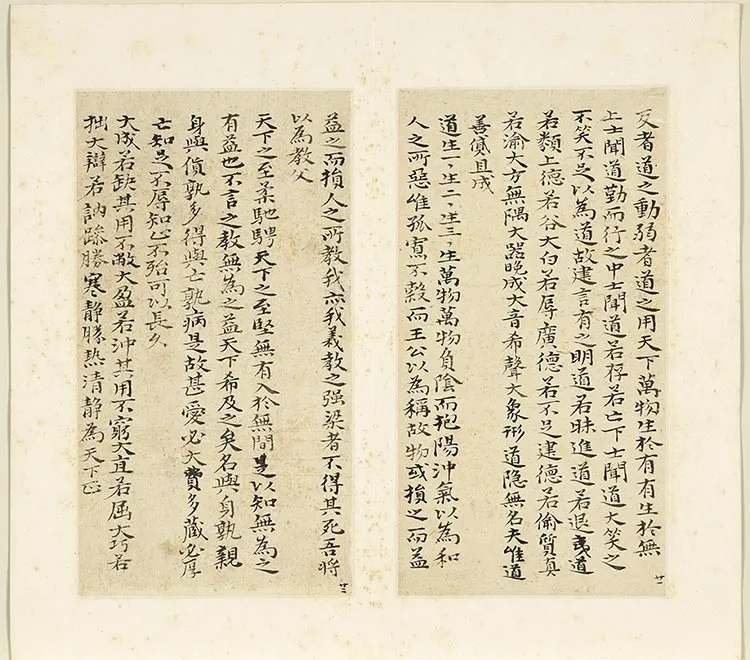 反者道之動弱者道之用天下萬物生於有有生於無
上士聞道勤而行之中士聞道若存若亡下士聞道大笑之
不笑不足以為道故建言有之明道若昧進道若退夷道
若類上德若谷大白若辱廣德若不足建德若偷質真
若渝大方無隅大器晚成大音希聲大象形道隐無名夫惟道
善貸且成
道生一〻生二〻生三〻生萬物萬物負陰而抱陽沖氣以為和
人之所惡惟孤寡不穀而王公以為稱故物或損之而益
益之而損人之所教我亦我義教之强梁者不得其死吾將
以為教父
天下之至柔馳騁天下之至堅無有入於無間是以知無為之
有益也不言之教無為之益天下希及之矣名與身孰親
身與貨孰多得與亡孰病是故甚愛必大費多藏必厚
亡知足不辱知止不殆可以長久
大成若缺其用不敝大盈若沖其用不窮大直若屈大巧若
拙大辯若訥躁勝寒静勝熱清静為天下正